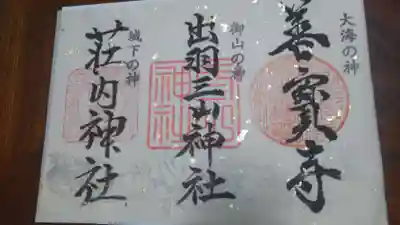 大海の神
善寳寺
御山の湯
出羽三山神社
城下の神
荘内神社